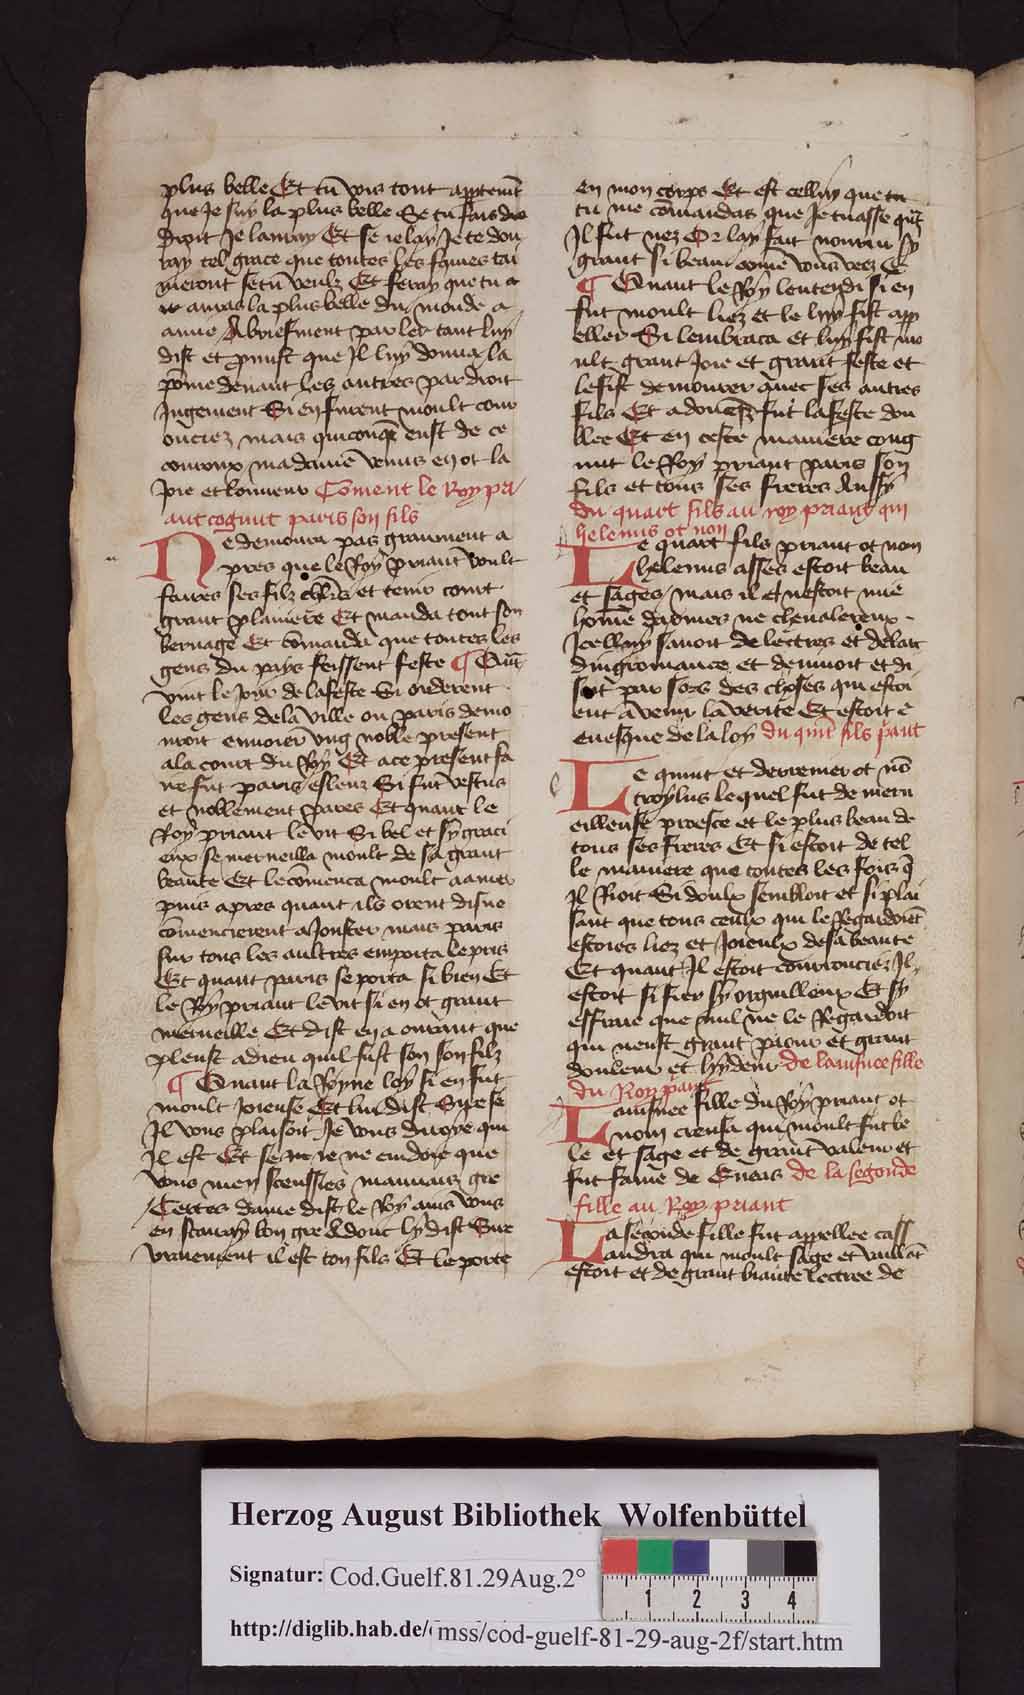 plus belle Et tu vois tout appertemt
que Je suy la plus belle Se tu fais de
Droit Je lauray Et se ie lay Je te don
ray tel grace que toutes les fames tai
meront se tu veulz Et feray que tu a
auras la plus belle du monde a
amie Abriefment parler tant luy
dist et pmist que Jl luy donna la
pome deuant les autres par droit
Jngement Si en furent moult cour
ouciez mais quiconq eust de ce
couroux madame venus en ot la
Joie et lonneur Coment le Roy pri
ant cognut paris son fils
Ne demoura pas grantment a
pres que le Roy priant voult
faires ses filz chlrs et tenir court
grant planiere Et manda tout son
bernage Et comanda que toutes les
gens du pays feissent feste ¶ Quant
vint le Jour de la feste Si orderent
les gens de la ville ou paris demo
roit enuoier vng noble present
a la court du Roy Et a ce present fa
re fut paris esleuz Si fut vestus
et noblement pares Et quant le
Roy priant le vit Si bel et sy graci
eux se merueilla moult de sa grant
beaute Et le comenca moult a amer
puis apres quant ils orent disne
comencierent a Jouster mais paris
sur tous les aultres emporta le pris
Et quant paris se porta si bien Et
le Roy priant le vit si en ot grant
merueille Et dist en a ourant que
pleust a dieu quil fust son son filz
¶ Quant la Royne loy si en fut
moult Joieuse Et lui dist Sire se
Jl vous plaisoit Je vous diroye qui
Jl est Et se ne ie ne cuidoie que
vous men sceussies mauuaiz gre
Certes dame dist le Roy ains vous
en scauray bon gre Adonc ly dist Sire
vraiement il est ton fils Et le porte
en mon corps Et est celluy que tu
tu me comandas que Je tuasse qnt
Jl fut nez Or lay fait nourrir sy
grant si beau come vous veez Et
¶ Quant le Roy lentendi si en
fut moult liez et le luy fist app
eller Si lembraca et luy fist mo
ult grant Joie et grant feste et
le fist demourer auec ses autres
fils Et a donc fut la feste dou
blee Et en ceste maniere cong
nut le Roy priant paris son
fils et tous ses freres Aussy
du quart fils au roy priant qui
helenus ot non
Le quart fils priant ot nom
helenus asses estoit beau
et sages mais il et nestoit mie
home darmes ne cheualereux
Jcelluy sauoit de lectres et de lart
dingromance et deuinoit et di
soit par sors des choses qui estoi
ent a venir la verite Et estoit e
euesque de la loy du quit fils pant
Le quint et derremer ot no
troylus lequel fut de meru
eilleuse proesce et le plus beau de
tous ses freres Et si estoit de tel
le maniere que toutes les fois q
Jl Rioit Si doulx sembloit et si plai
sant que tous ceulx qui le Regardoiet
estoies liez et Joieulx de sa beaute
Et quant Jl estoit courrouciez Jl
estoit si fier sy orguilleux Et sy
effraie que nul ne le Regardoit
qui neust grant paour et grant
douleur et hydeur de lainsnee fille
du Roy pant
Lainsnee fille du Roy priant ot
nom creusa qui moult fut be
le et sage et de grant valeur et
fut fame de Eneas de la segonde
fille au Roy priant
La seconde fille fut appellee cass
andra qui moult sage et vaillat
estoit et de grant biaute lectree de
Herzog August Bibliothek Wolfenbüttel
Signatur: Cod.Guelf.81.29Aug.2°
1 2 3 4
http://diglib.hab.de/ mss/cod-guelf-81-29-aug-2f/start.htm